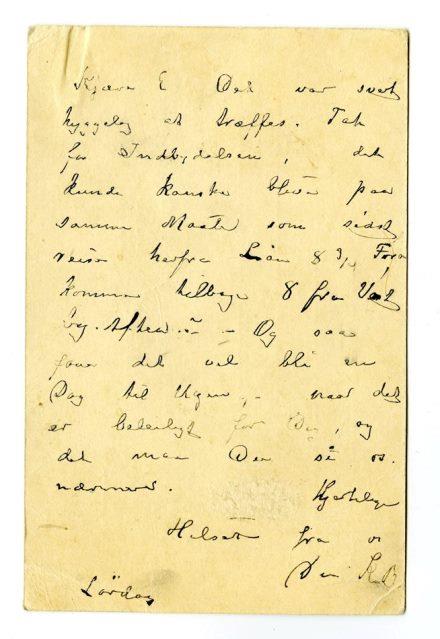 Kjære E Det var svært
hyggelig at træffes. Tak
for Indbydelsen, det
kunde kanske blive paa
samme Maate som sidst
reise herfra Lian 8 3/4
komme tilbage 8 fra
Aften. - Og saa
faar det vel bli en
Dag til Ugen, - naar det
er beleiligt for Dig, og
det maa Du si os
nærmere. Hjertelige
Hilsen fra os
Din K
Lördag